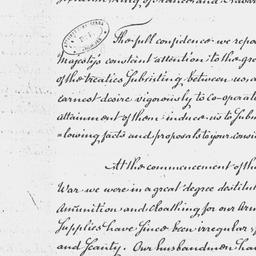 The full confidence we repo
Majesty's constant attention to the gre
of the treaties Subsisting between us, a
earnest desire vigorously to co-operat
attainment of them induce us to Sub
=lowing facts and proposals to your consi
At the commencement of the
War we were in a great degree destitut
Ammunition and cloathing for our Arm
Supplies have Since been irregular
and Scanty. Our husbandmen hav